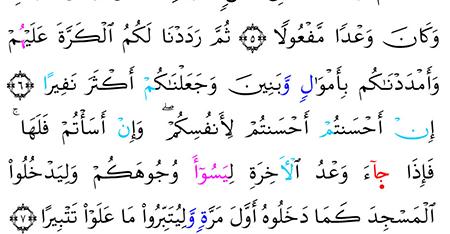 وَكَانَ وَعْدًا مَّفْعُولًا ﴿٥﴾ ثُمَّ رَدَدْنَا لَكُمُ ٱلْكَرَّةَ عَلَيْهِمْ
وَأَمْدَدْنَاكُم بِأَمْوَالٍ وَبَنِينَ وَجَعَلْنَاكُمْ أَكْثَرَ نَفِيرًا ﴿٦﴾
إِنْ أَحْسَنتُمْ أَحْسَنتُمْ لِأَنفُسِكُمْ ۖ وَإِنْ أَسَأْتُمْ فَلَهَا ۚ
فَإِذَا جَآءَ وَعْدُ ٱلْأَخِرَةِ لِيَسُـۥٓـُٔوا۟ وُجُوهَكُمْ وَلِيَدْخُلُوا۟
ٱلْمَسْجِدَ كَمَا دَخَلُوهُ أَوَّلَ مَرَّةٍ وَلِيُتَبِّرُوا۟ مَا عَلَوْا۟ تَتْبِيرًا ﴿٧﴾